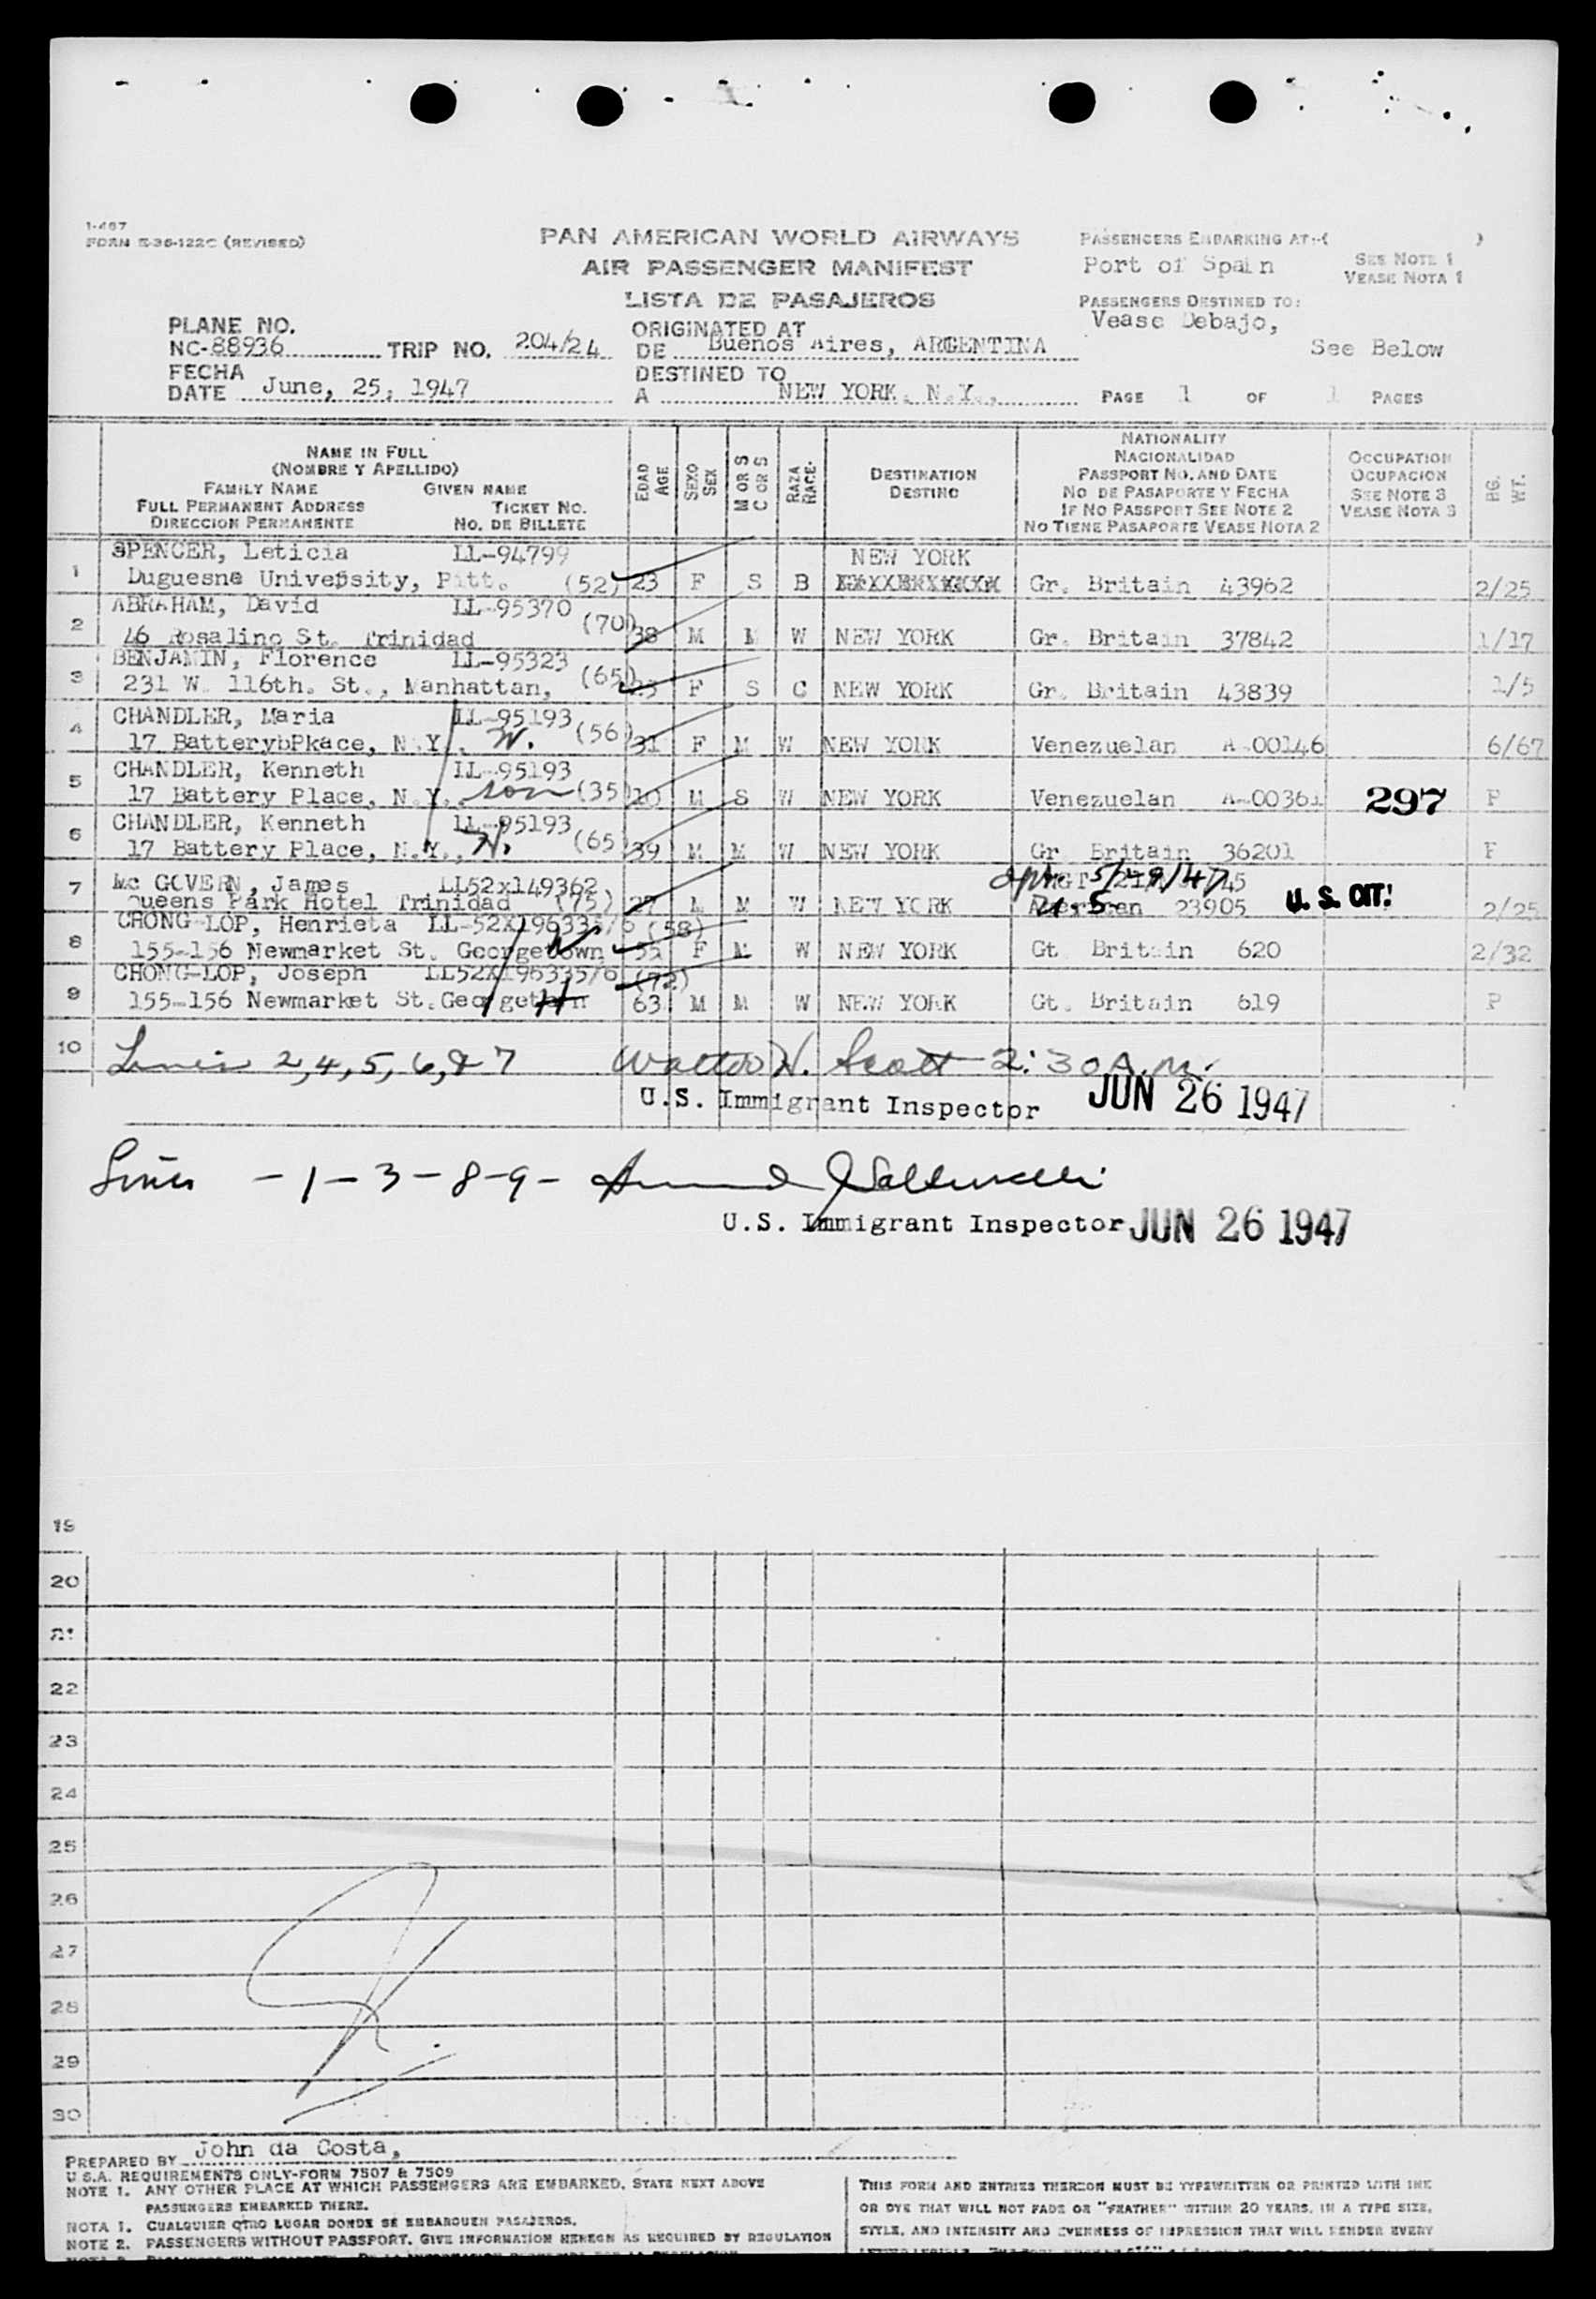 1-467
FORM E-36-122C (REVISED)
PAN AMERICAN WORLD AIRWAYS
AIR PASSENGER MANIFEST
LISTA DE PASAJEROS
PASSENGERS EMBARKING AT:-( )
Port of Spain
SEE NOTE 1
VEASE NOTA 1
PASSENGERS DESTINED TO:
Vease Debajo,
See Below
PLANE NO.
NC-88936 TRIP NO. 204/24
FECHA
DATE June, 25, 1947
ORIGINATED AT
DE Buenos Aires, ARGENTINA
DESTINED TO
A NEW YORK. N.Y.,
PAGE 1 OF 1 PAGES
NAME IN FULL
(NOMBRE Y APELLIDO)
FAMILY NAME GIVEN NAME
FULL PERMANENT ADDRESS TICKET NO.
DIRECCION PERMANENTE NO. DE BILLETE
EDAD AGE
SEXO SEX
M OR S C OR S
RAZA RACE.
DESTINATION
DESTINO
NATIONALITY
NACIONALIDAD
PASSPORT NO. AND DATE
NO DE PASAPORTE Y FECHA
IF NO PASSPORT SEE NOTE 2
NO TIENE PASAPORTE VEASE NOTA 2
OCCUPATION
OCUPACION
SEE NOTE 3
VEASE NOTA 3
BG. WT.
1 SPENCER, Leticia LL-94799 NEW YORK
Duguesne University, Pitt. (52) 23 F S B Gr. Britain 43962 2/25
2 ABRAHAM, David LL-95370 (70)
46 Rosalino St. Trinidad 38 M M W NEW YORK Gr. Britain 37842 1/17
3 BENJAMIN, Florence LL-95323 (65)
231 W. 116th. St., Manhattan, F S C NEW YORK Gr. Britain 43839 1/5
4 CHANDLER, Maria LL-95193 (56)
17 BatterybPkace, N.Y., W. 31 F M W NEW YORK Venezuelan A-00146 6/67
5 CHANDLER, Kenneth LL-95193
17 Battery Place, N.Y., son (35) 10 M S W NEW YORK Venezuelan A-00361 297 P
6 CHANDLER, Kenneth LL-95193
17 Battery Place, N.Y., H. (65) 39 M M W NEW YORK Gr Britain 36201 P
7 Mc GOVERN, James LL52x149362
Queens Park Hotel Trinidad (75) 27 M M W NEW YORK 5/29/47 U.S. 23905 U. S. CIT! 2/25
8 CHONG-LOP, Henrieta LL-52X196335/6 (58)
155-156 Newmarket St. Georgetown W 55 F M W NEW YORK Gt Britain 620 2/32
9 CHONG-LOP, Joseph LL52X196335/6 (72)
155-156 Newmarket St. Georgetown H 63 M M W NEW YORK Gt. Britain 619 P
10 Lines 2,4,5,6,&7 Walter N. Scott 2:30 A.M.
U.S. Immigrant Inspector JUN 26 1947
Lines -1-3-8-9-
U.S. Immigrant Inspector JUN 26 1947
19
20
21
22
23
24
25
26
27
28
29
30
PREPARED BY John da Costa,
U.S.A. REQUIREMENTS ONLY-FORM 7507 & 7509
NOTE 1. ANY OTHER PLACE AT WHICH PASSENGERS ARE EMBARKED. STATE NEXT ABOVE
PASSENGERS EMBARKED THERE.
NOTA 1. CUALQUIER OTRO LUGAR DONDE SE EMBARQUEN PASAJEROS.
NOTE 2. PASSENGERS WITHOUT PASSPORT. GIVE INFORMATION HEREON AS REQUIRED BY REGULATION
THIS FORM AND ENTRIES THEREON MUST BE TYPEWRITTEN OR PRINTED WITH INK
OR DYE THAT WILL NOT FADE OR "FEATHER" WITHIN 20 YEARS, IN A TYPE SIZE,
STYLE, AND INTENSITY AND EVENNESS OF IMPRESSION THAT WILL RENDER EVERY